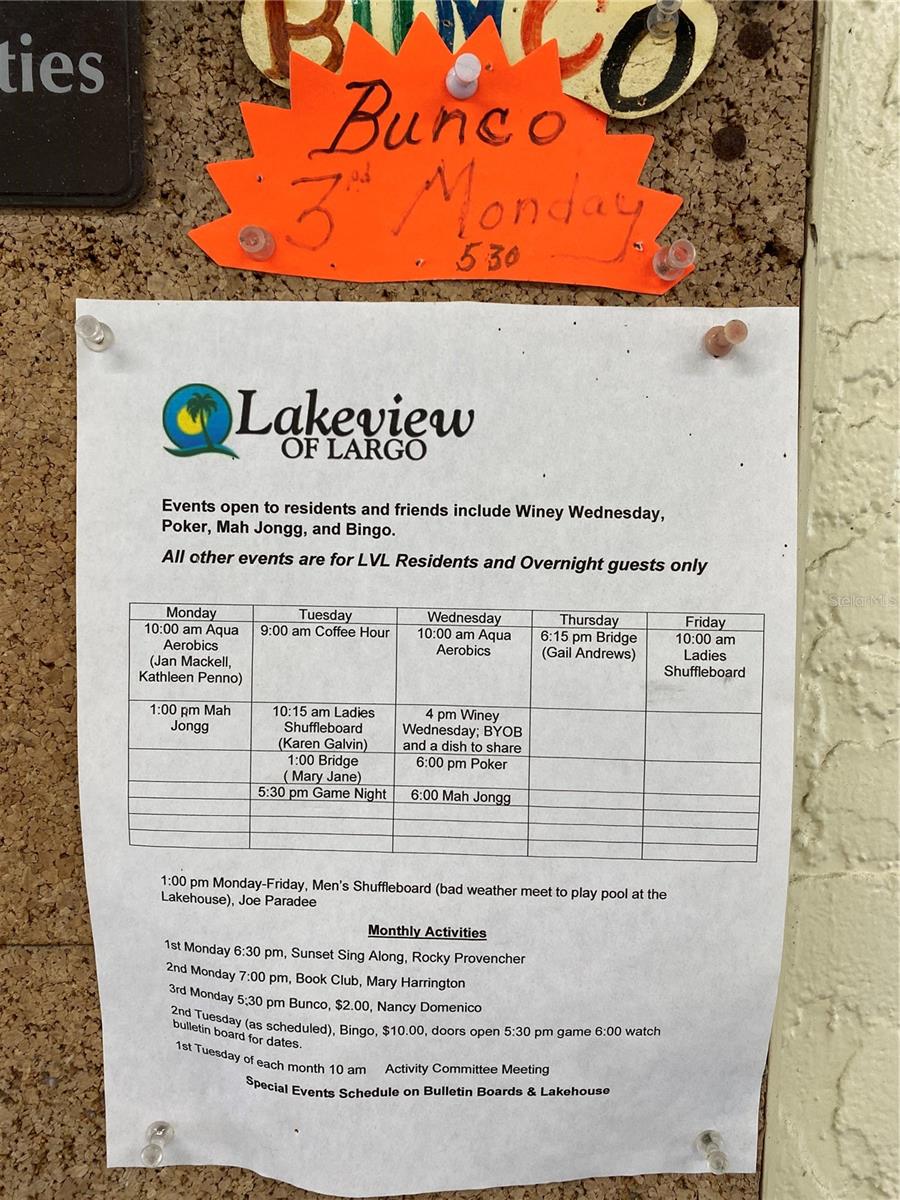 ties
BINGO
Bunco
3rd Monday
530
Lakeview
OF LARGO
Events open to residents and friends include Winey Wednesday,
Poker, Mah Jongg, and Bingo.
All other events are for LVL Residents and Overnight guests only
Monday Tuesday Wednesday Thursday Friday
10:00 am Aqua
Aerobics
(Jan Mackell,
Kathleen Penno)
9:00 am Coffee Hour
10:00 am Aqua
Aerobics
6:15 pm Bridge
(Gail Andrews)
10:00 am
Ladies
Shuffleboard
1:00 pm Mah
Jongg
10:15 am Ladies
Shuffleboard
(Karen Galvin)
4 pm Winey
Wednesday; BYOB
and a dish to share
1:00 Bridge
( Mary Jane)
6:00 pm Poker
5:30 pm Game Night
6:00 Mah Jongg
1:00 pm Monday-Friday, Men's Shuffleboard (bad weather meet to play pool at the
Lakehouse), Joe Paradee
Monthly Activities
1st Monday 6:30 pm, Sunset Sing Along, Rocky Provencher
2nd Monday 7:00 pm, Book Club, Mary Harrington
3rd Monday 5:30 pm Bunco, $2.00, Nancy Domenico
2nd Tuesday (as scheduled), Bingo, $10.00, doors open 5:30 pm game 6:00 watch
bulletin board for dates.
1st Tuesday of each month 10 am Activity Committee Meeting
Special Events Schedule on Bulletin Boards & Lakehouse
StellarMLS